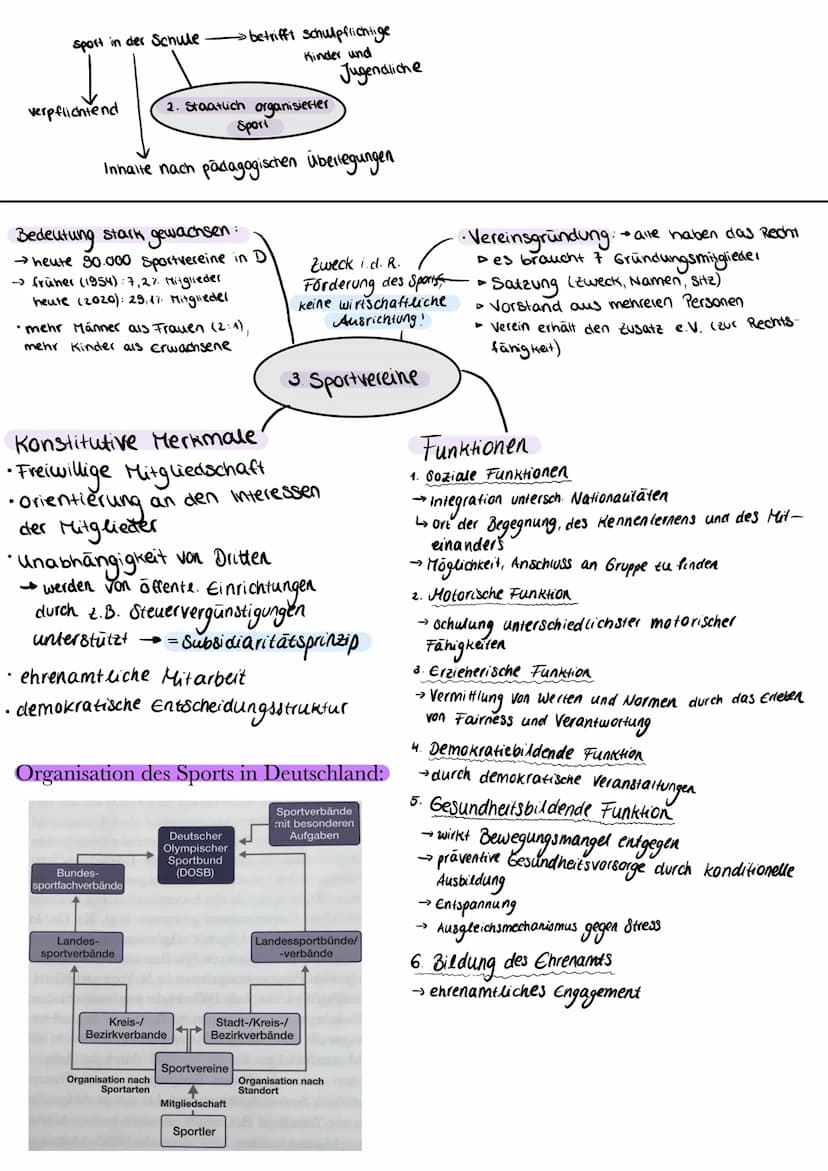 Sport in der Schule → betrifft schulpflichtige
Kinder und
Jugendliche
verpflichtend
2. Staatlich organisierter
Sport
Inhalte nach pädagogischen Überlegungen
Bedeutung stark gewachsen:
→ heute 90.000 Sportvereine in D
→ früher (1954): 7,2% Mitglieder
heute (2020): 29,1% Mitglieder
· mehr Männer als Frauen (2:1),
mehr Kinder als Erwachsene
Zweck i.d.R.
Förderung des Sports,
keine wirtschaftliche
Ausrichtung!
· Vereinsgründung: → alle haben das Recht
▹ es braucht 7 Gründungsmitglieder
▸ Satzung (Zweck, Namen, Sitz)
▹ Vorstand aus mehreren Personen
▸ Verein erhält den Zusatz e.V. (zur Rechts-
fähigkeit)
3. Sportvereine
Konstitutive Merkmale
· Freiwillige Mitgliedschaft
· Orientierung an den Interessen
der Mitglieder
· Unabhängigkeit von Dritten
→ werden von öffentl. Einrichtungen
durch z.B. Steuervergünstigungen
unterstützt → = Subsidiaritätsprinzip
· ehrenamtliche Mitarbeit
· demokratische Entscheidungsstruktur
Funktionen
1. Soziale Funktionen
→ Integration untersch. Nationalitäten
↳ Ort der Begegnung, des Kennenlernens und des Mit-
einanders
→ Möglichkeit, Anschluss an Gruppe zu finden
2. Motorische Funktion
→ Schulung unterschiedlichster motorischer
Fähigkeiten
3. Erzieherische Funktion
→ Vermittlung von Werten und Normen durch das Erleben
von Fairness und Verantwortung
4. Demokratiebildende Funktion
→ durch demokratische Veranstaltungen
5. Gesundheitsbildende Funktion
→ wirkt Bewegungsmangel entgegen
→ präventive Gesundheitsvorsorge durch konditionelle
Ausbildung
→ Entspannung
→ Ausgleichsmechanismus gegen Stress
6. Bildung des Ehrenamts
→ ehrenamtliches Engagement
Organisation des Sports in Deutschland:
Sportverbände
mit besonderen
Aufgaben
Deutscher
Olympischer
Sportbund
(DOSB)
Bundes-
sportfachverbände
Landes-
sportverbände
Landessportbünde/
-verbände
Kreis-/
Bezirkverbande
Stadt-/Kreis-/
Bezirkverbände
Sportvereine
Organisation nach
Sportarten
Organisation nach
Standort
Mitgliedschaft
Sportler